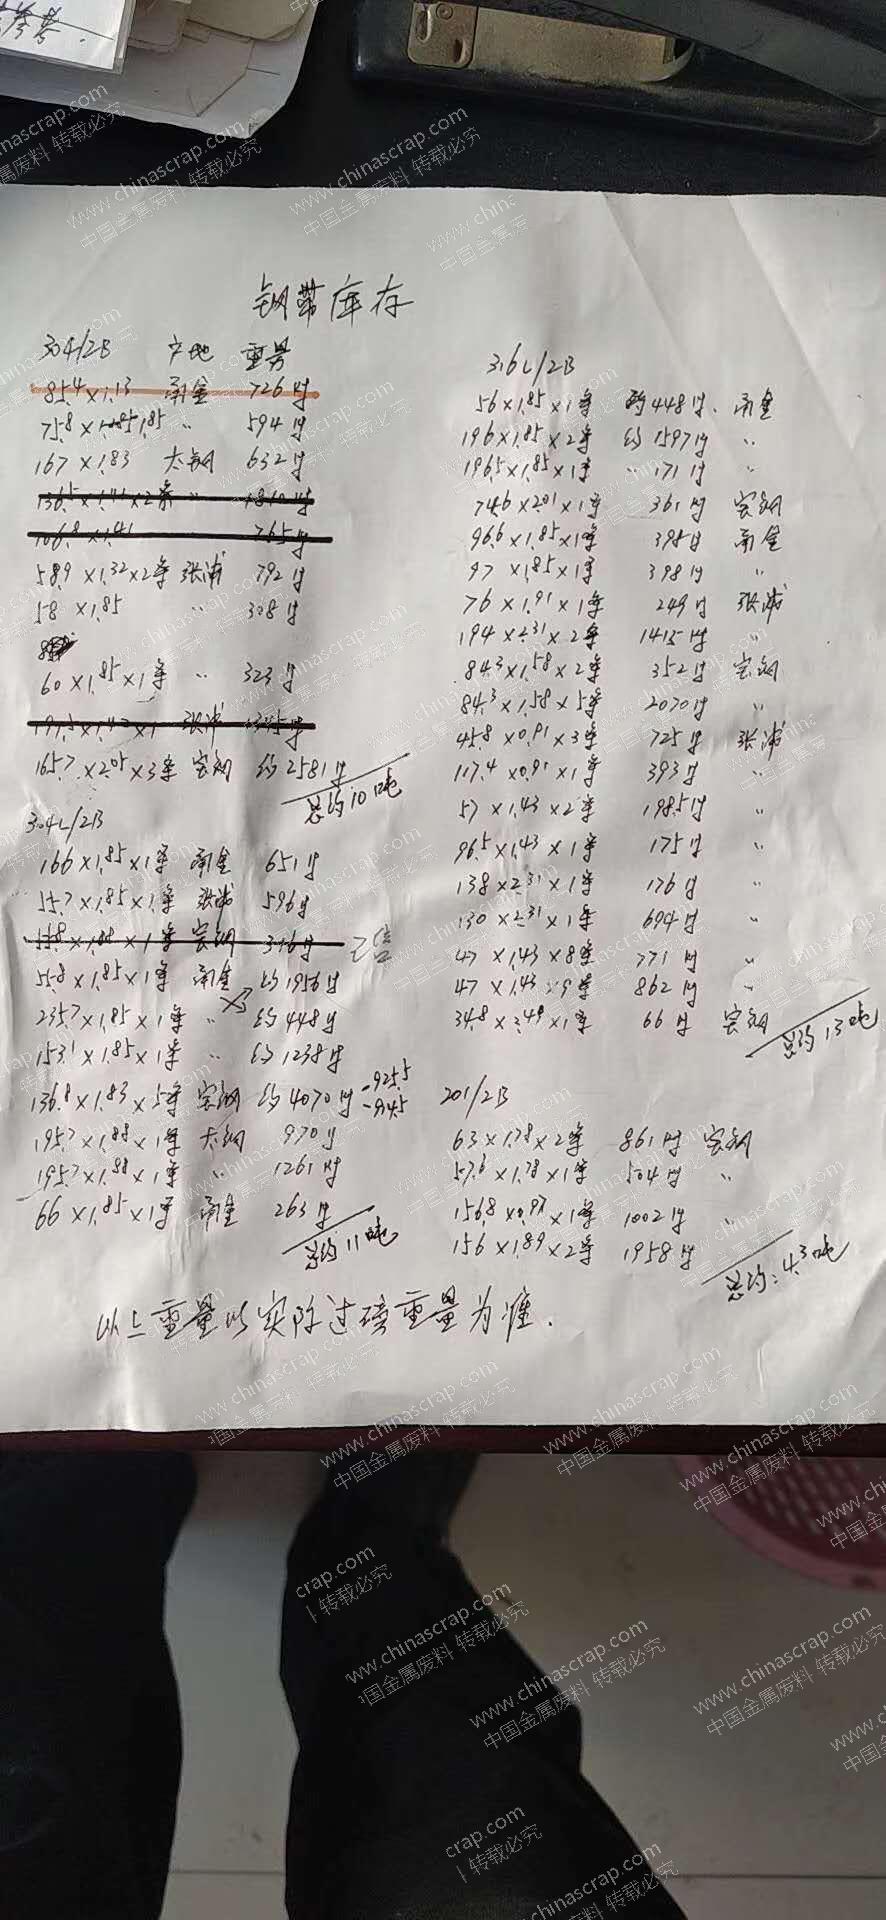 钢带库存
304/2B 产地 重量
85.4×1.13 甬金 726kg
75.8×1.85 〃 594kg
167×1.83 太钢 632kg
136.5×1.41×2条 〃 1810kg
106.8×1.41 765kg
58.9×1.32×2条 张浦 792kg
58×1.85 〃 308kg
60×1.85×1条 〃 323kg
张浦 1345kg
165.7×2.05×3条 宝钢 约2581kg
总约10吨
304L/2B
166×1.85×1条 甬金 651kg
55.7×1.85×1条 张浦 596kg
×1条 宝钢 316kg
55.8×1.85×1条 甬金 约1956kg
235.7×1.85×1条 〃 约448kg
153.1×1.85×1条 〃 约1238kg
136.8×1.83×5条 宝钢 约4070kg -925.5
-914.5
195.7×1.88×1条 太钢 970kg
195.7×1.88×1条 〃 1261kg
66×1.85×1条 甬金 263kg
总约11吨
316L/2B
56×1.85×1条 约448kg 甬金
196×1.85×2条 约1597kg 〃
196.5×1.85×1条 〃171kg 〃
74.6×2.01×1条 361kg 宝钢
96.6×1.85×1条 395kg 甬金
97×1.85×1条 398kg 〃
76×1.91×1条 249kg 张浦
194×2.31×2条 1415kg 〃
84.3×1.58×2条 352kg 宝钢
84.3×1.58×5条 2070kg 〃
45.8×0.91×3条 725kg 张浦
117.4×0.91×1条 393kg 〃
57×1.43×2条 198.5kg 〃
96.5×1.43×1条 175kg 〃
138×2.31×1条 176kg 〃
130×2.31×1条 694kg 〃
47×1.43×8条 771kg 〃
47×1.43×9条 862kg 〃
34.8×3.49×1条 66kg 宝钢
总约13吨
201/2B
63×1.78×2条 861kg 宝钢
57.6×1.78×1条 504kg 〃
156.8×0.97×1条 1002kg 〃
156×1.89×2条 1958kg
总约:4.3吨
以上重量以实际过磅重量为准.
www.chinascrap.com
中国金属废料 转载必究